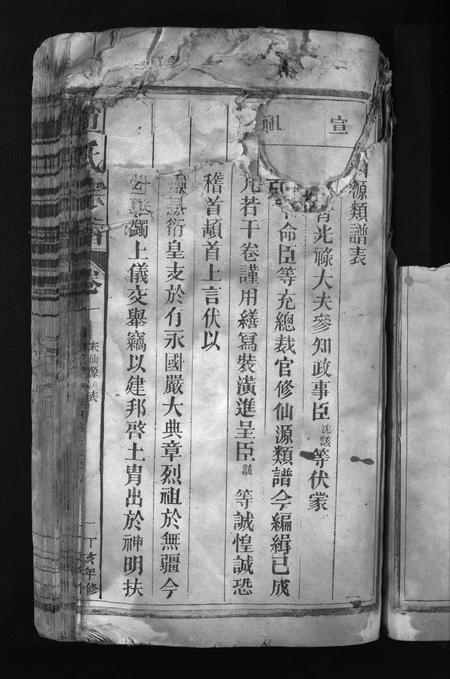 宣祖
仙源類譜表
光祿大夫參知政事臣沈該等伏蒙
命臣等充總裁官修仙源類譜今編緝已成
凡若干卷謹用繕寫裝潢進呈臣該等誠惶誠恐
稽首頓首上言伏以
衍皇支於有永國嚴大典章烈祖於無疆今
燭上儀交舉竊以建邦啓土胄出於神明扶
氏宗譜
卷一
宋仙源類表
丁亥年修